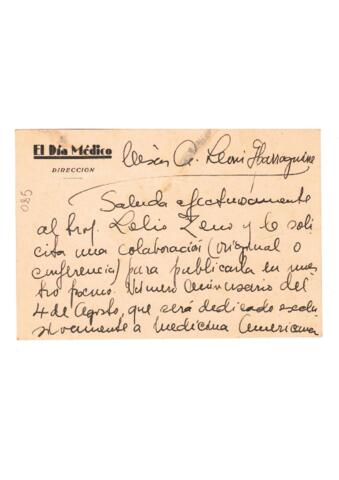 El Día Médico
DIRECCION
085
César A. Leoni Iparraguirre
Saluda afectuosamente
al Prof. Lelio Zeno y le soli
cita una colaboración (original o
conferencia) para publicarla en nues
tro número aniversario del
4 de Agosto, que será dedicado exclu
sivamente a medicina Americana